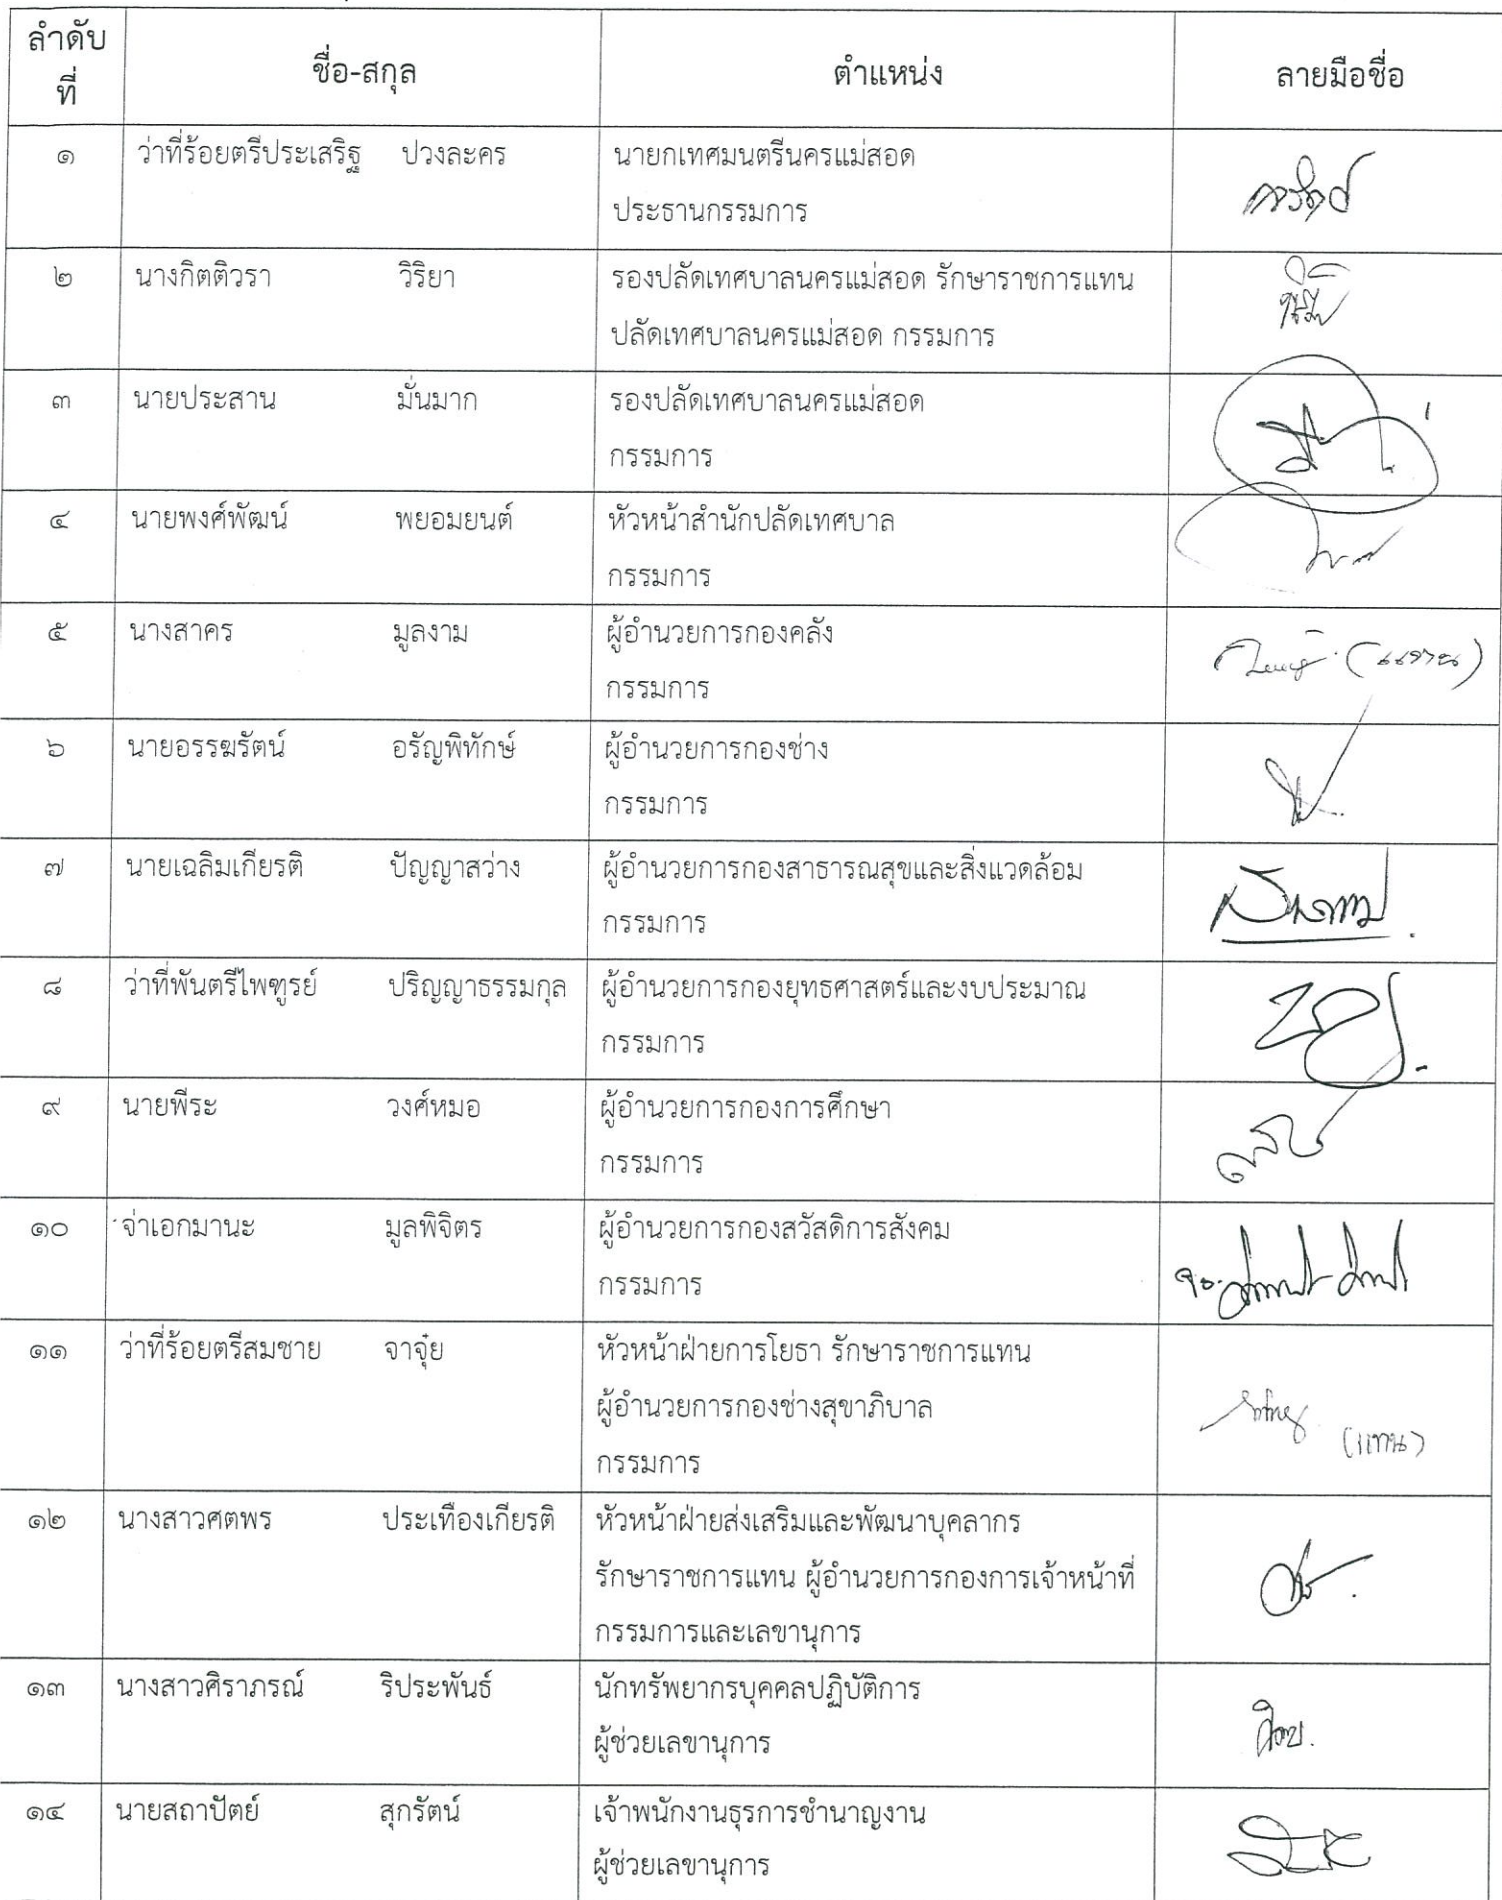 ลำดับ
ที่
ชื่อ-สกุล
ตำแหน่ง
ลายมือชื่อ
๑ ว่าที่ร้อยตรีประเสริฐ ปวงละคร นายกเทศมนตรีนครแม่สอด
ประธานกรรมการ
๒ นางกิตติวรา วิริยา รองปลัดเทศบาลนครแม่สอด รักษาราชการแทน
ปลัดเทศบาลนครแม่สอด กรรมการ
๓ นายประสาน มั่นมาก รองปลัดเทศบาลนครแม่สอด
กรรมการ
๔ นายพงศ์พัฒน์ พยอมยนต์ หัวหน้าสำนักปลัดเทศบาล
กรรมการ
๕ นางสาคร มูลงาม ผู้อำนวยการกองคลัง
(แทน)
กรรมการ
๖ นายอรรฆรัตน์ อรัญพิทักษ์ ผู้อำนวยการกองช่าง
กรรมการ
๗ นายเฉลิมเกียรติ ปัญญาสว่าง ผู้อำนวยการกองสาธารณสุขและสิ่งแวดล้อม
กรรมการ
๘ ว่าที่พันตรีไพฑูรย์ ปริญญาธรรมกุล ผู้อำนวยการกองยุทธศาสตร์และงบประมาณ
กรรมการ
๙ นายพีระ วงศ์หมอ ผู้อำนวยการกองการศึกษา
กรรมการ
๑๐ จ่าเอกมานะ มูลพิจิตร ผู้อำนวยการกองสวัสดิการสังคม
กรรมการ
๑๑ ว่าที่ร้อยตรีสมชาย จาจุ๋ย หัวหน้าฝ่ายการโยธา รักษาราชการแทน
ผู้อำนวยการกองช่างสุขาภิบาล
(แทน)
กรรมการ
๑๒ นางสาวศตพร ประเทืองเกียรติ หัวหน้าฝ่ายส่งเสริมและพัฒนาบุคลากร
รักษาราชการแทน ผู้อำนวยการกองการเจ้าหน้าที่
กรรมการและเลขานุการ
๑๓ นางสาวศิราภรณ์ ริประพันธ์ นักทรัพยากรบุคคลปฏิบัติการ
ผู้ช่วยเลขานุการ
๑๔ นายสถาปัตย์ สุกรัตน์ เจ้าพนักงานธุรการชำนาญงาน
ผู้ช่วยเลขานุการ